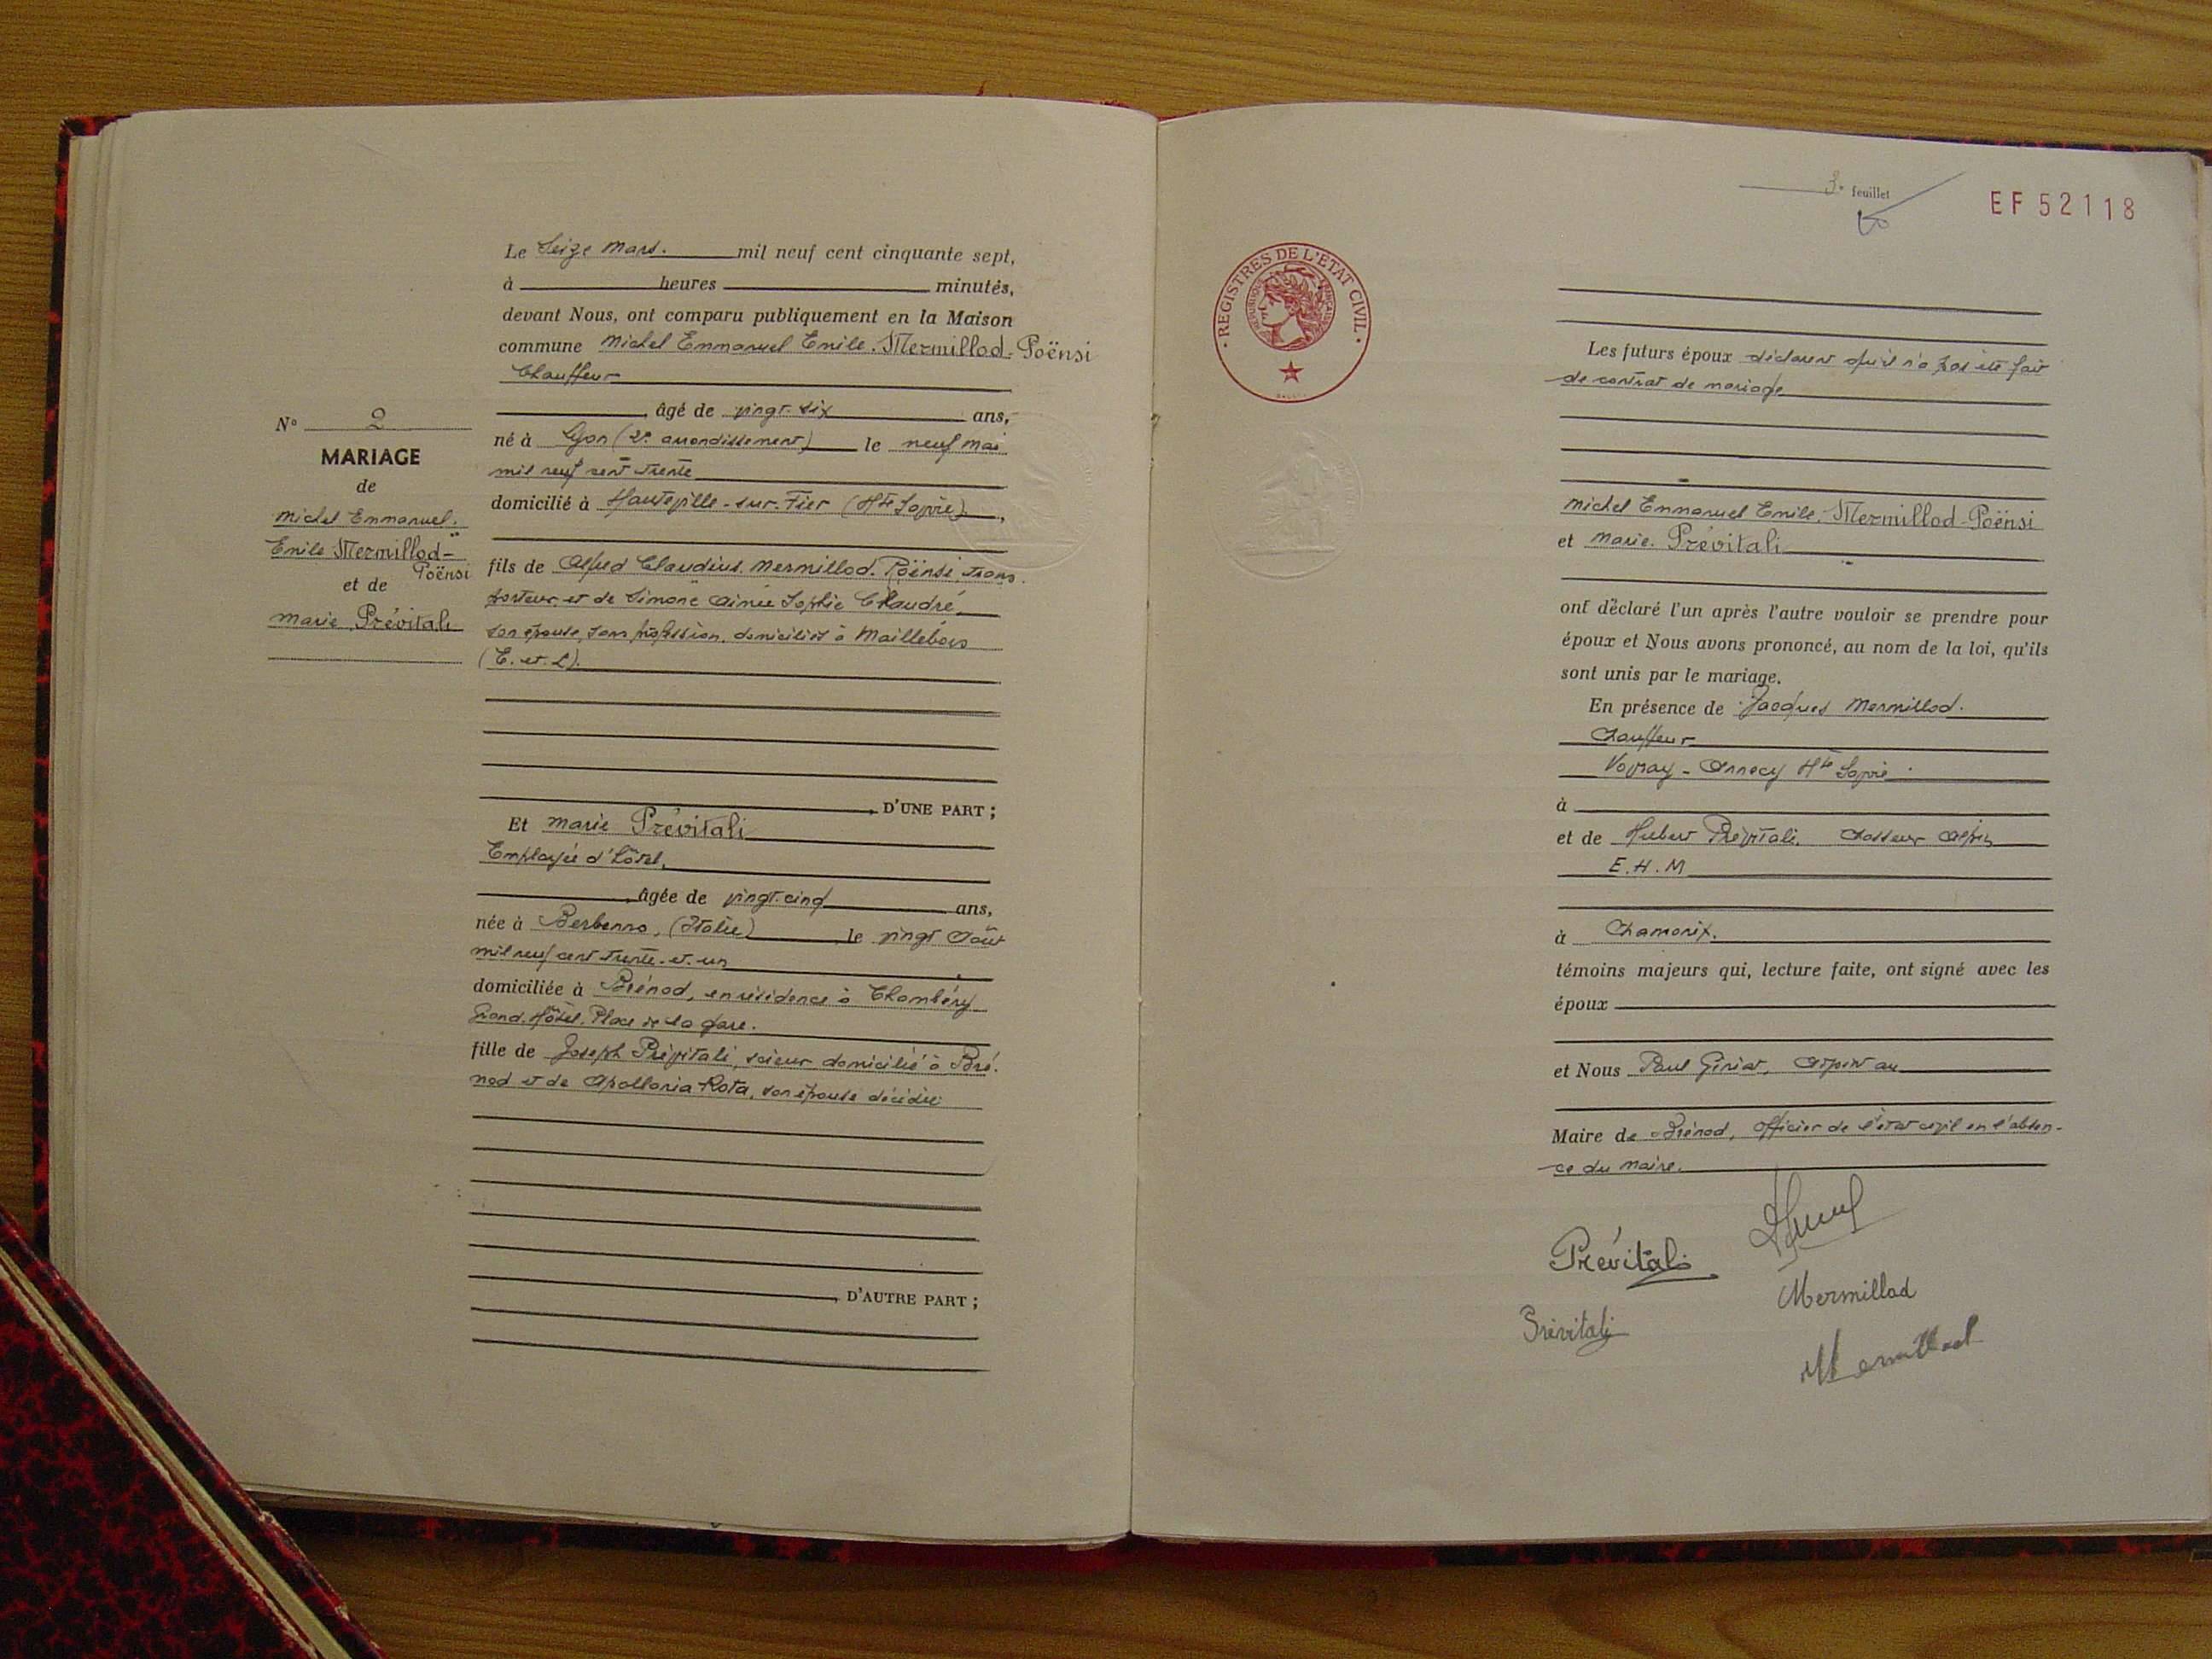 Le Seize Mars. mil neuf cent cinquante sept,
à heures minutes,
devant Nous, ont comparu publiquement en la Maison
commune Michel Emmanuel Emile. Mermillod-Poënsi
Chauffeur
, âgé de vingt-six ans,
né à Lyon (2e arrondissement) le neuf Mai
mil neuf cent trente
domicilié à Hauteville-sur-Fier (Hte Savoie),
fils de Alfred Claudius. Mermillod. Poënsi, trans-
porteur, et de Simone Aimée Sophie Chaudré,
son épouse, sans profession, domiciliés à Maillebois
(E. et. L).
D'UNE PART ;
Et Marie Prévitali
Employée d'hôtel,
, âgée de vingt-cinq ans,
née à Berbenno, (Italie) le vingt Août
mil neuf cent trente-et-un
domiciliée à Brénod, en résidence à Chambéry
Grand. Hôtel. Place de la gare.
fille de Joseph Prévitali, scieur domicilié à Bré-
nod et de Apollonia Rota, son épouse décédée
D'AUTRE PART ;
N° 2
MARIAGE
de
Michel Emmanuel.
Emile Mermillod-
Poënsi
et de
Marie Prévitali
3e feuillet
EF 52118
REGISTRES DE L'ETAT CIVIL
Les futurs époux déclarent qu'il n'a pas été fait
de contrat de mariage
Michel Emmanuel Emile. Mermillod-Poënsi
et Marie. Prévitali
ont déclaré l'un après l'autre vouloir se prendre pour
époux et Nous avons prononcé, au nom de la loi, qu'ils
sont unis par le mariage.
En présence de Jacques Mermillod.
Chauffeur
Vovray - Annecy Hte Savoie.
à
et de Hubert Prévitali. Chasseur Alpin
E.H.M
à Chamonix.
témoins majeurs qui, lecture faite, ont signé avec les
époux
et Nous Paul Giriat, adjoint au
Maire de Brénod, Officier de l'état civil en l'absen-
ce du Maire.
Prévitali
Mermillod
Prévitali
Mermillod